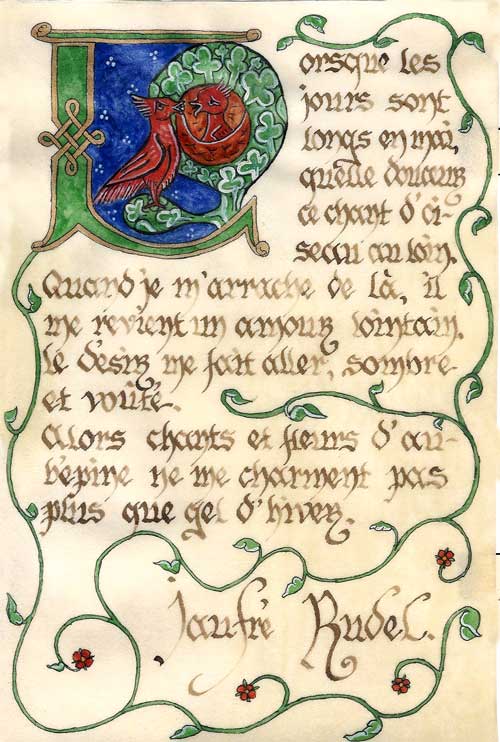 Lorsque les
jours sont
longs en mai,
quelle douceur
ce chant d'oi-
seau au loin.
Quand je m'arrache de là, il
me revient un amour lointain.
Le désir me fait aller, sombre
et voûté.
Alors chants et fleurs d'au-
bépine ne me charment pas
plus que gel d'hiver.
Jaufré Rudel.